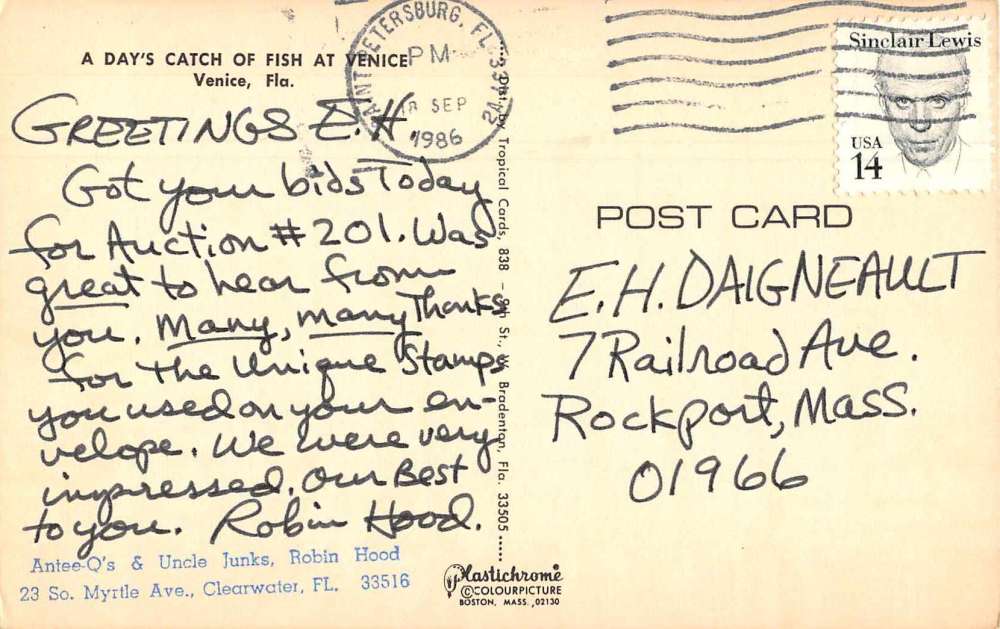 A DAY'S CATCH OF FISH AT VENICE
Venice, Fla.
GREETINGS E.H.
Got your bids Today
for Auction #201. Was
great to hear from
you. Many, many Thanks
for the Unique Stamps
you used on your en-
velope. We were very
impressed. Our Best
to you. Robin Hood.
Antee-Q's & Uncle Junks, Robin Hood
23 So. Myrtle Ave., Clearwater, FL. 33516
SAINT PETERSBURG, FL 337
PM
SEP
1986
Dist. by Tropical Cards, 838 - St., W. Bradenton, Fla. 33505
Plastichrome
©COLOURPICTURE
BOSTON, MASS., 02130
Sinclair Lewis
USA
14
POST CARD
E.H. DAIGNEAULT
7 Railroad Ave.
Rockport, Mass.
01966